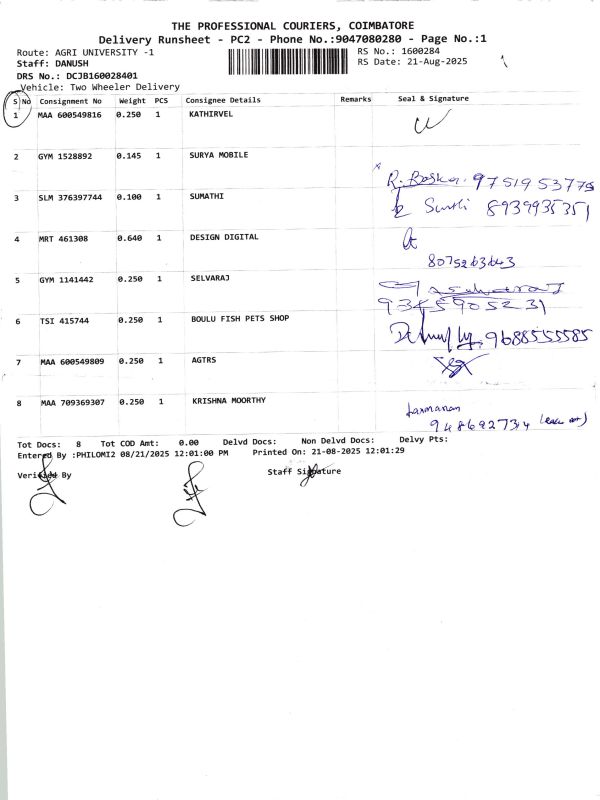 THE PROFESSIONAL COURIERS, COIMBATORE
Delivery Runsheet - PC2 - Phone No.:9047080280 - Page No.:1
Route: AGRI UNIVERSITY -1
RS No.: 1600284
Staff: DANUSH
RS Date: 21-Aug-2025
DRS No.: DCJB160028401
Vehicle: Two Wheeler Delivery
S No Consignment No Weight PCS Consignee Details Remarks Seal & Signature
1 MAA 600549816 0.250 1 KATHIRVEL
2 GYM 1528892 0.145 1 SURYA MOBILE
R. Baskar. 9751953775
3 SLM 376397744 0.100 1 SUMATHI
8939935351
4 MRT 461308 0.640 1 DESIGN DIGITAL
8075263643
5 GYM 1141442 0.250 1 SELVARAJ
9345905231
6 TSI 415744 0.250 1 BOULU FISH PETS SHOP
9688555585
7 MAA 600549809 0.250 1 AGTRS
8 MAA 709369307 0.250 1 KRISHNA MOORTHY
Laxmanan
Tot Docs: 8 Tot COD Amt: 0.00 Delvd Docs: Non Delvd Docs: Delvy Pts:
Entered By :PHILOMI2 08/21/2025 12:01:00 PM Printed On: 21-08-2025 12:01:29
Verified By Staff Signature